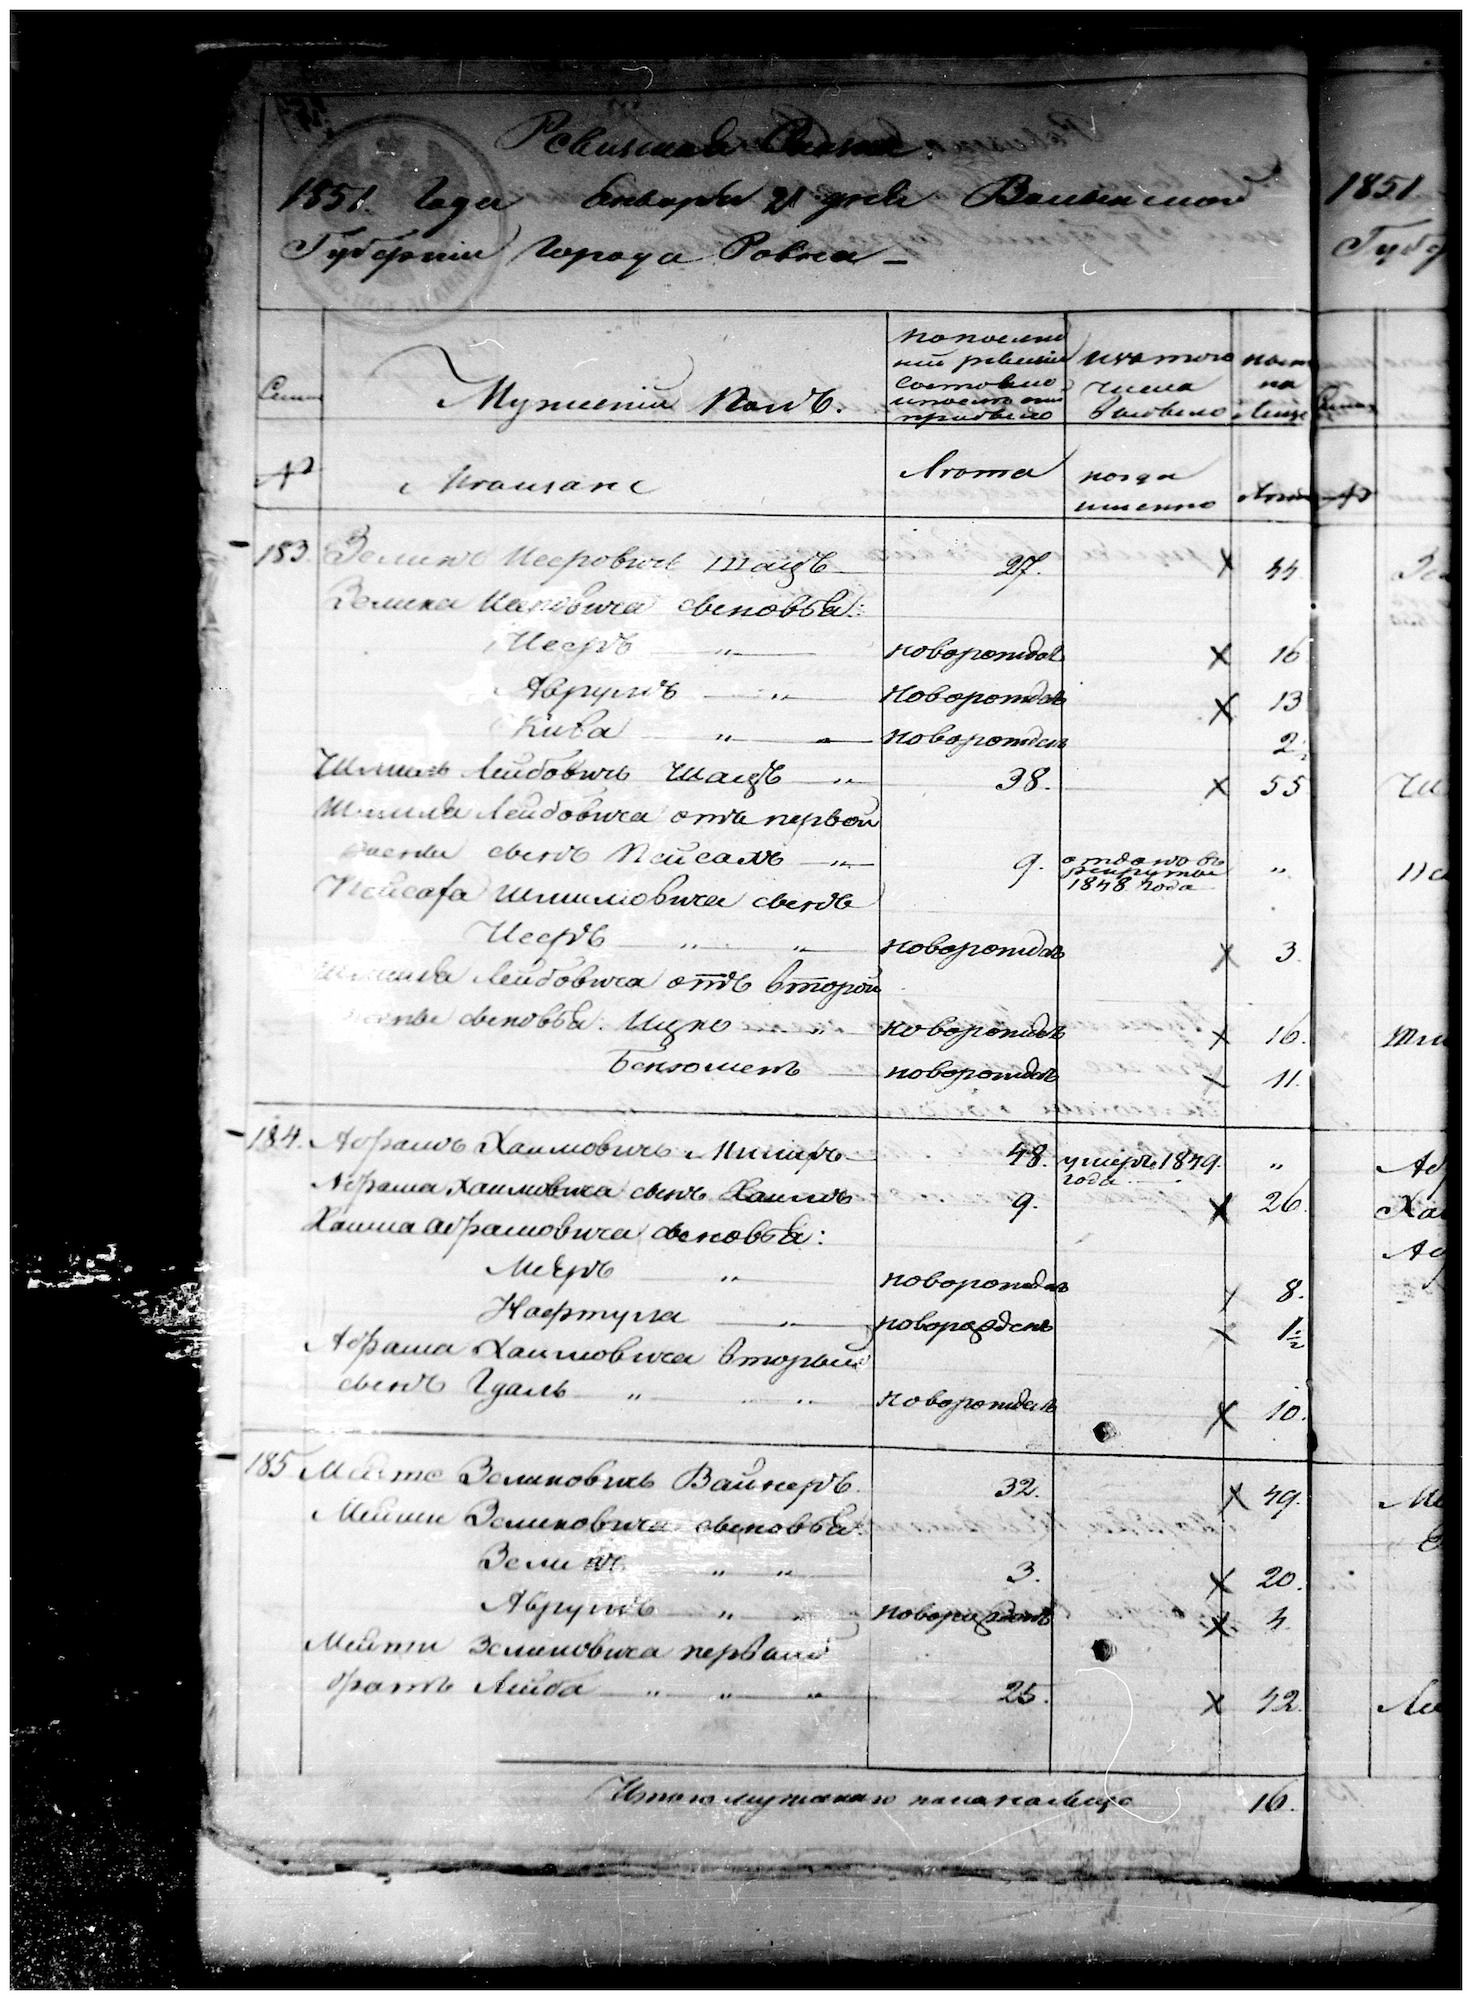 Ревизская Сказка.
1851. Года Января 21 дня Волынской
Губернiи Города Ровна —
Семьи
Мужескiй Полъ.
по послед
ней ревизiи
состояло
и после оной
прибыло
изъ того
числа
выбыло
ныне
на
лице
№
Мещане
Лета
когда
именно
Лета
183. Зеликъ Иосровичъ Шацъ 27. X 44.
Зелика Иосровича сыновья:
Иосръ — " — новорожден X 16
Аврумъ — " — новорожден X 13
Кива — " — новорожденъ 2½
Шмиль Лейбовичъ Шацъ — " 38. X 55
Шмиля Лейбовича отъ первой
жены сынъ Пейсахъ — " — 9. отдано въ рекруты 1848 года "
Пейсаха Шмилиовича сынъ
Иосръ — " — " — новорожденъ X 3.
Шмиля Лейбовича отъ второй
жены сыновья: Ицко — " новорожденъ X 16.
Бенюменъ новорожденъ X 11.
184. Абрамъ Хаимовичъ 48. умеръ 1849. года "
Абрама Хаимовича сынъ Хаимъ 9. X 26.
Хаима Абрамовича сыновья:
Мееръ — " — новорожден 8.
Нафтула — " — новорожденъ X 1½
Абрама Хаимовича вторый
сынъ Гдаль " " новорожденъ X 10.
185 Мейте Зеликовичъ Вайнеръ. 32. X 49.
Мейти Зеликовича сыновья:
Зеликъ " " 3. X 20.
Аврумъ — " " новорожденъ X 4.
Мейти Зеликовича первый
братъ Лейба — " — " — " 25. X 42.
Итого мужескаго пола на лице 16.
1851
Губер